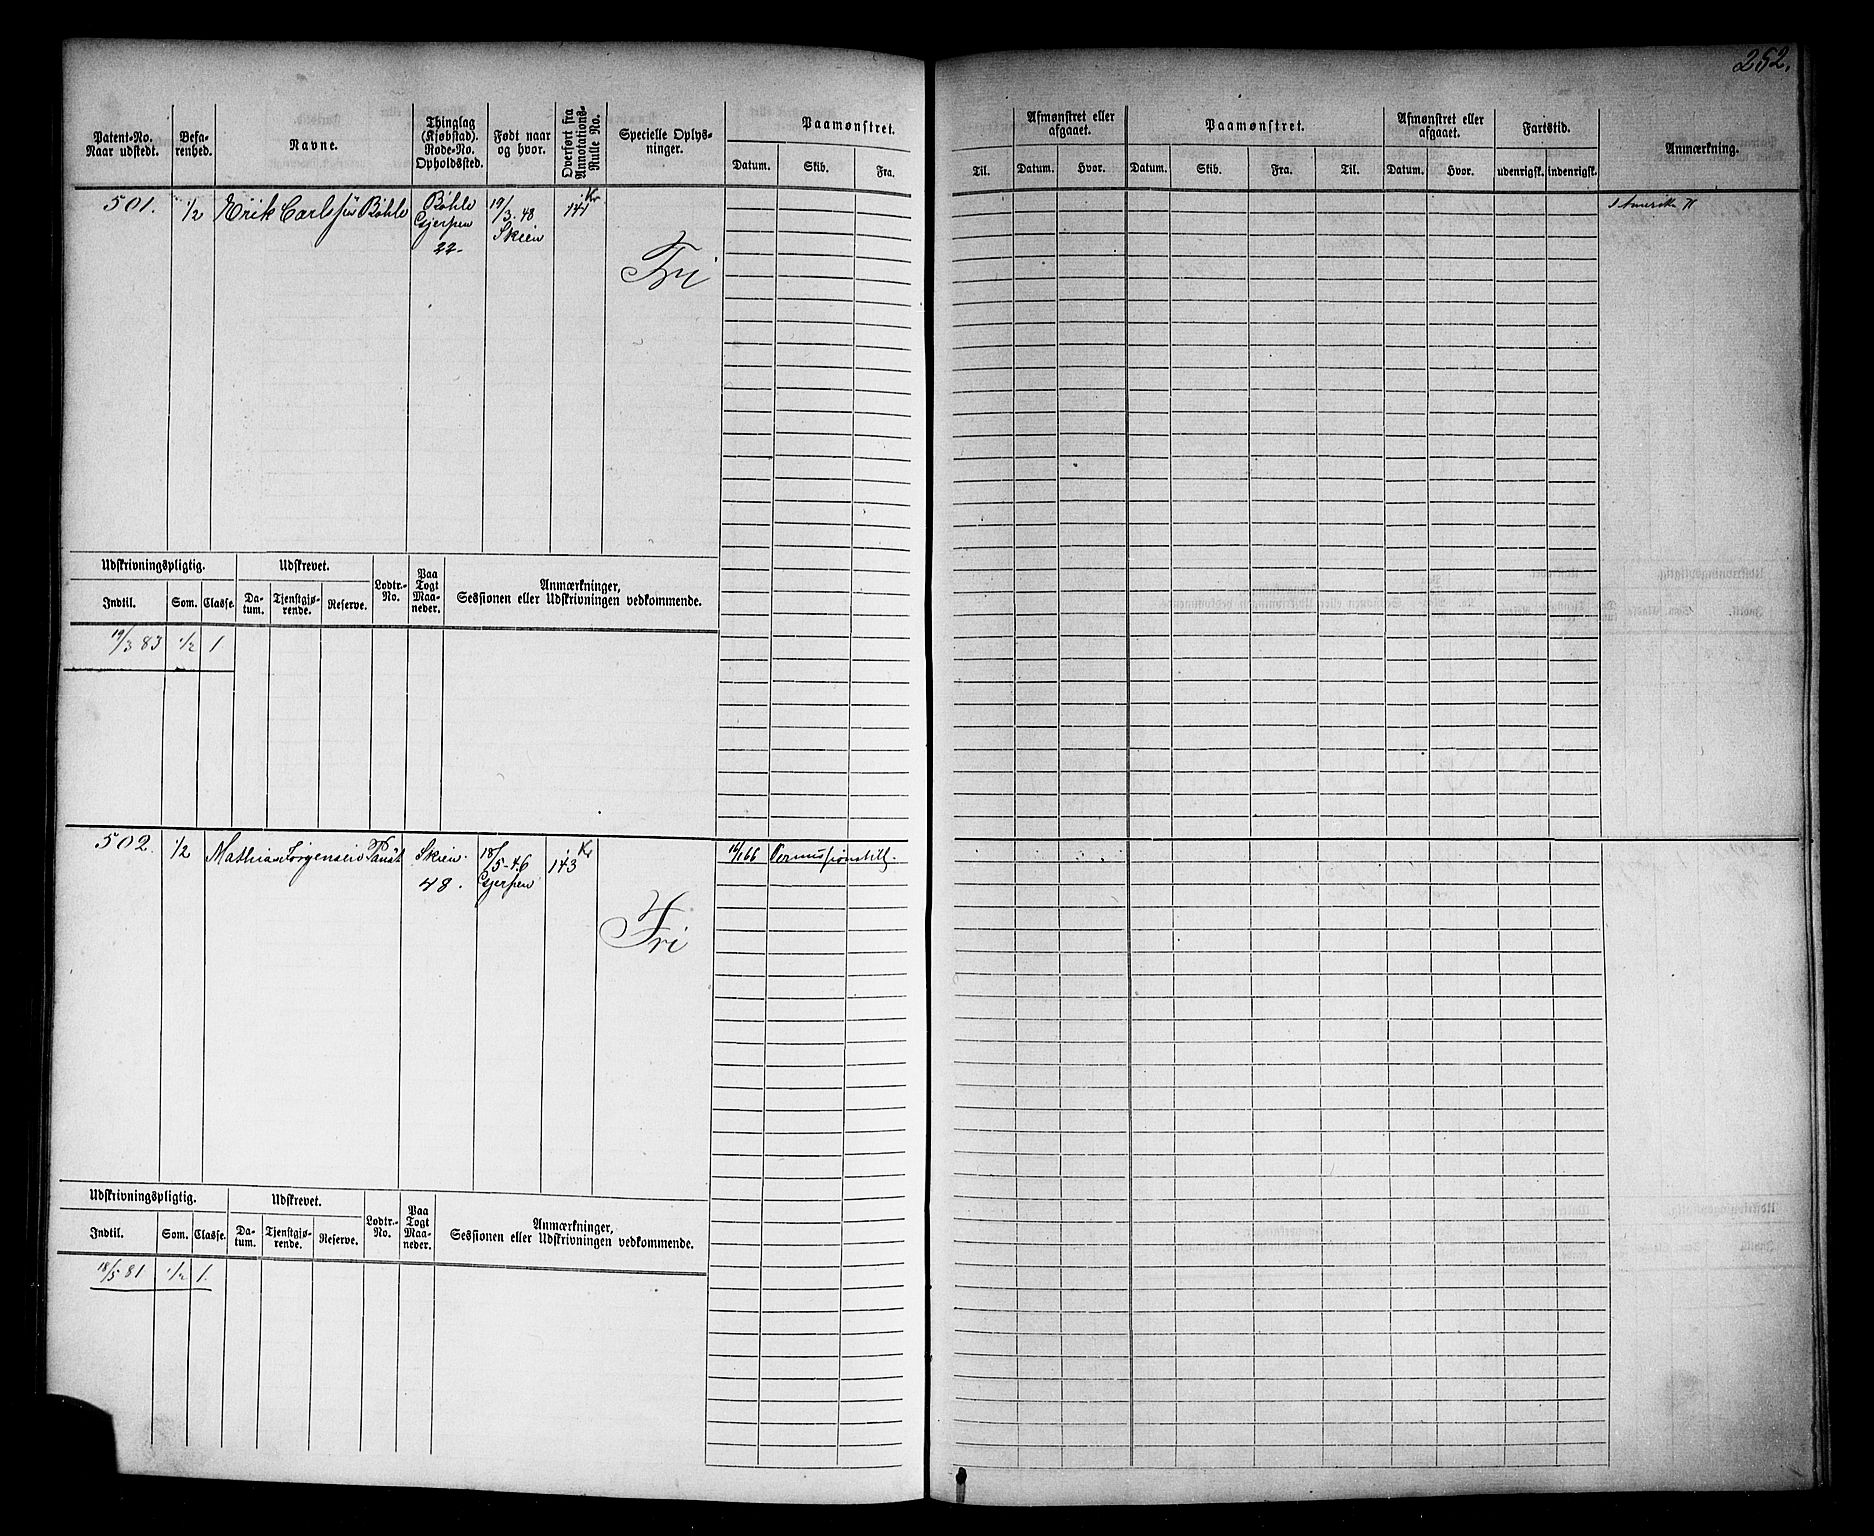 252.
Patent-No.
Naar udstedt.
Befa-
renhed.
Navne.
Thinglag
(Kjøbstad).
Rode-No.
Opholdssted.
Født naar
og hvor.
Overført fra
Annotations-
Rulle No.
Specielle Oplys-
ninger.
Paamønstret.
Datum.
Skib.
Fra.
Til.
Afmønstret eller
afgaaet.
Datum.
Hvor.
Paamønstret.
Datum.
Skib.
Fra.
Til.
Afmønstret eller
afgaaet.
Datum.
Hvor.
Fartstid.
udenrigsk.
indenrigsk.
Anmærkning.
501.
1/2
Erik Carlsen Bøhle
Bøhle
Gjerpen
22.
19/3 48
Skien
Kr
141
Fri
I Amerika
Udskrivningspligtig.
Udskrevet.
Lodtr.-
No.
Paa
Togt
Maa-
neder.
Anmærkninger,
Sessionen eller Udskrivningen vedkommende.
Indtil.
Som.
Classe.
Da-
tum.
Tjenstgjø-
rende.
Reserve.
19/3 83
1/2
1
502.
1/2
Mathias Jørgensen
Skien.
48.
18/5 - 46
Gjerpen
Kr
143
Fri
Udskrivningspligtig.
Udskrevet.
Lodtr.-
No.
Paa
Togt
Maa-
neder.
Anmærkninger,
Sessionen eller Udskrivningen vedkommende.
Indtil.
Som.
Classe.
Da-
tum.
Tjenstgjø-
rende.
Reserve.
18/5 81
1/2
1.